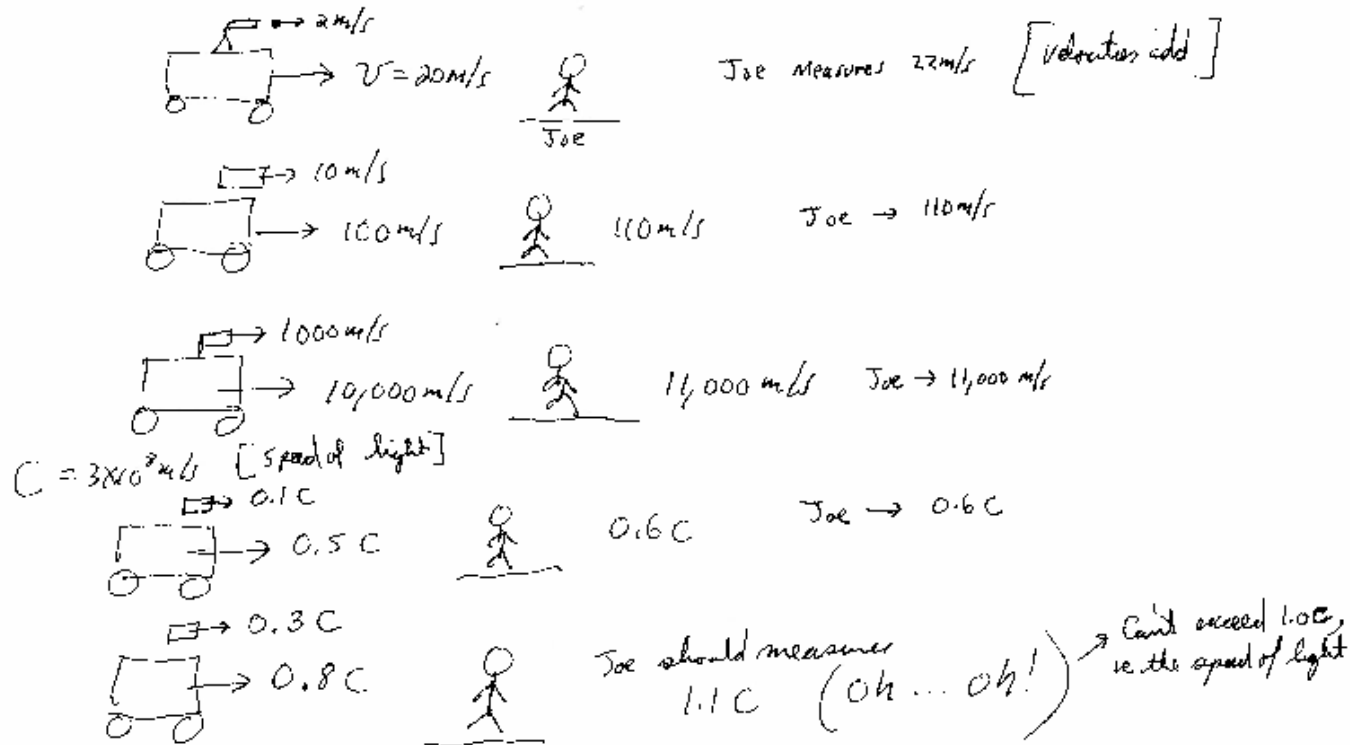 2m/s
V = 20m/s
Joe
Joe Measures 22m/s [velocities add]
10m/s
100m/s
110m/s
Joe → 110m/s
1000m/s
10,000m/s
11,000 m/s
Joe → 11,000 m/s
C = 3x10⁸m/s [speed of light]
0.1 C
0.5 C
0.6 C
Joe → 0.6 C
0.3 C
0.8 C
Joe should measure
1.1 C (oh ... oh!)
→ Can't exceed 1.0C,
ie the speed of light